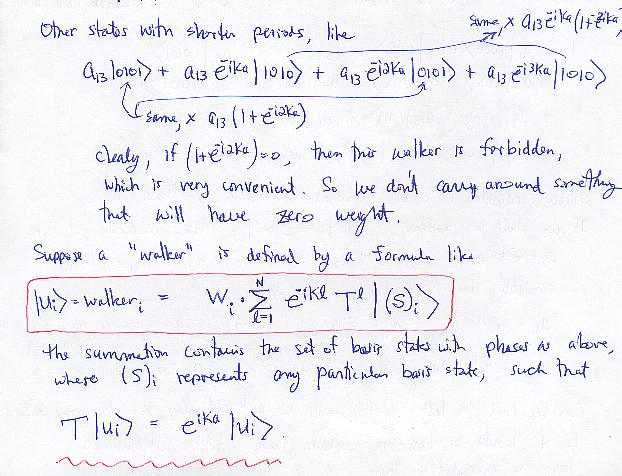 Other states with shorter periods, like
same, x a₁₃ e^{-ika}(1+e^{-i2ka})
a₁₃|0101⟩ + a₁₃ e^{-ika}|1010⟩ + a₁₃ e^{-i2ka}|0101⟩ + a₁₃ e^{-i3ka}|1010⟩
same, x a₁₃(1+e^{-i2ka})
Clealy, if (1+e^{-i2ka})=0, then this walker is forbidden,
which is very convenient. So we don't carry around something
that will have zero weight.
Suppose a "walker" is defined by a formula like
|u_i⟩ = walker_i = W_i · Σ_{l=1}^{N} e^{-ikl} T^l |(S)_i⟩
the summation contains the set of basis states with phases as above,
where (S)_i represents any particular basis state, such that
T|u_i⟩ = e^{ika}|u_i⟩.